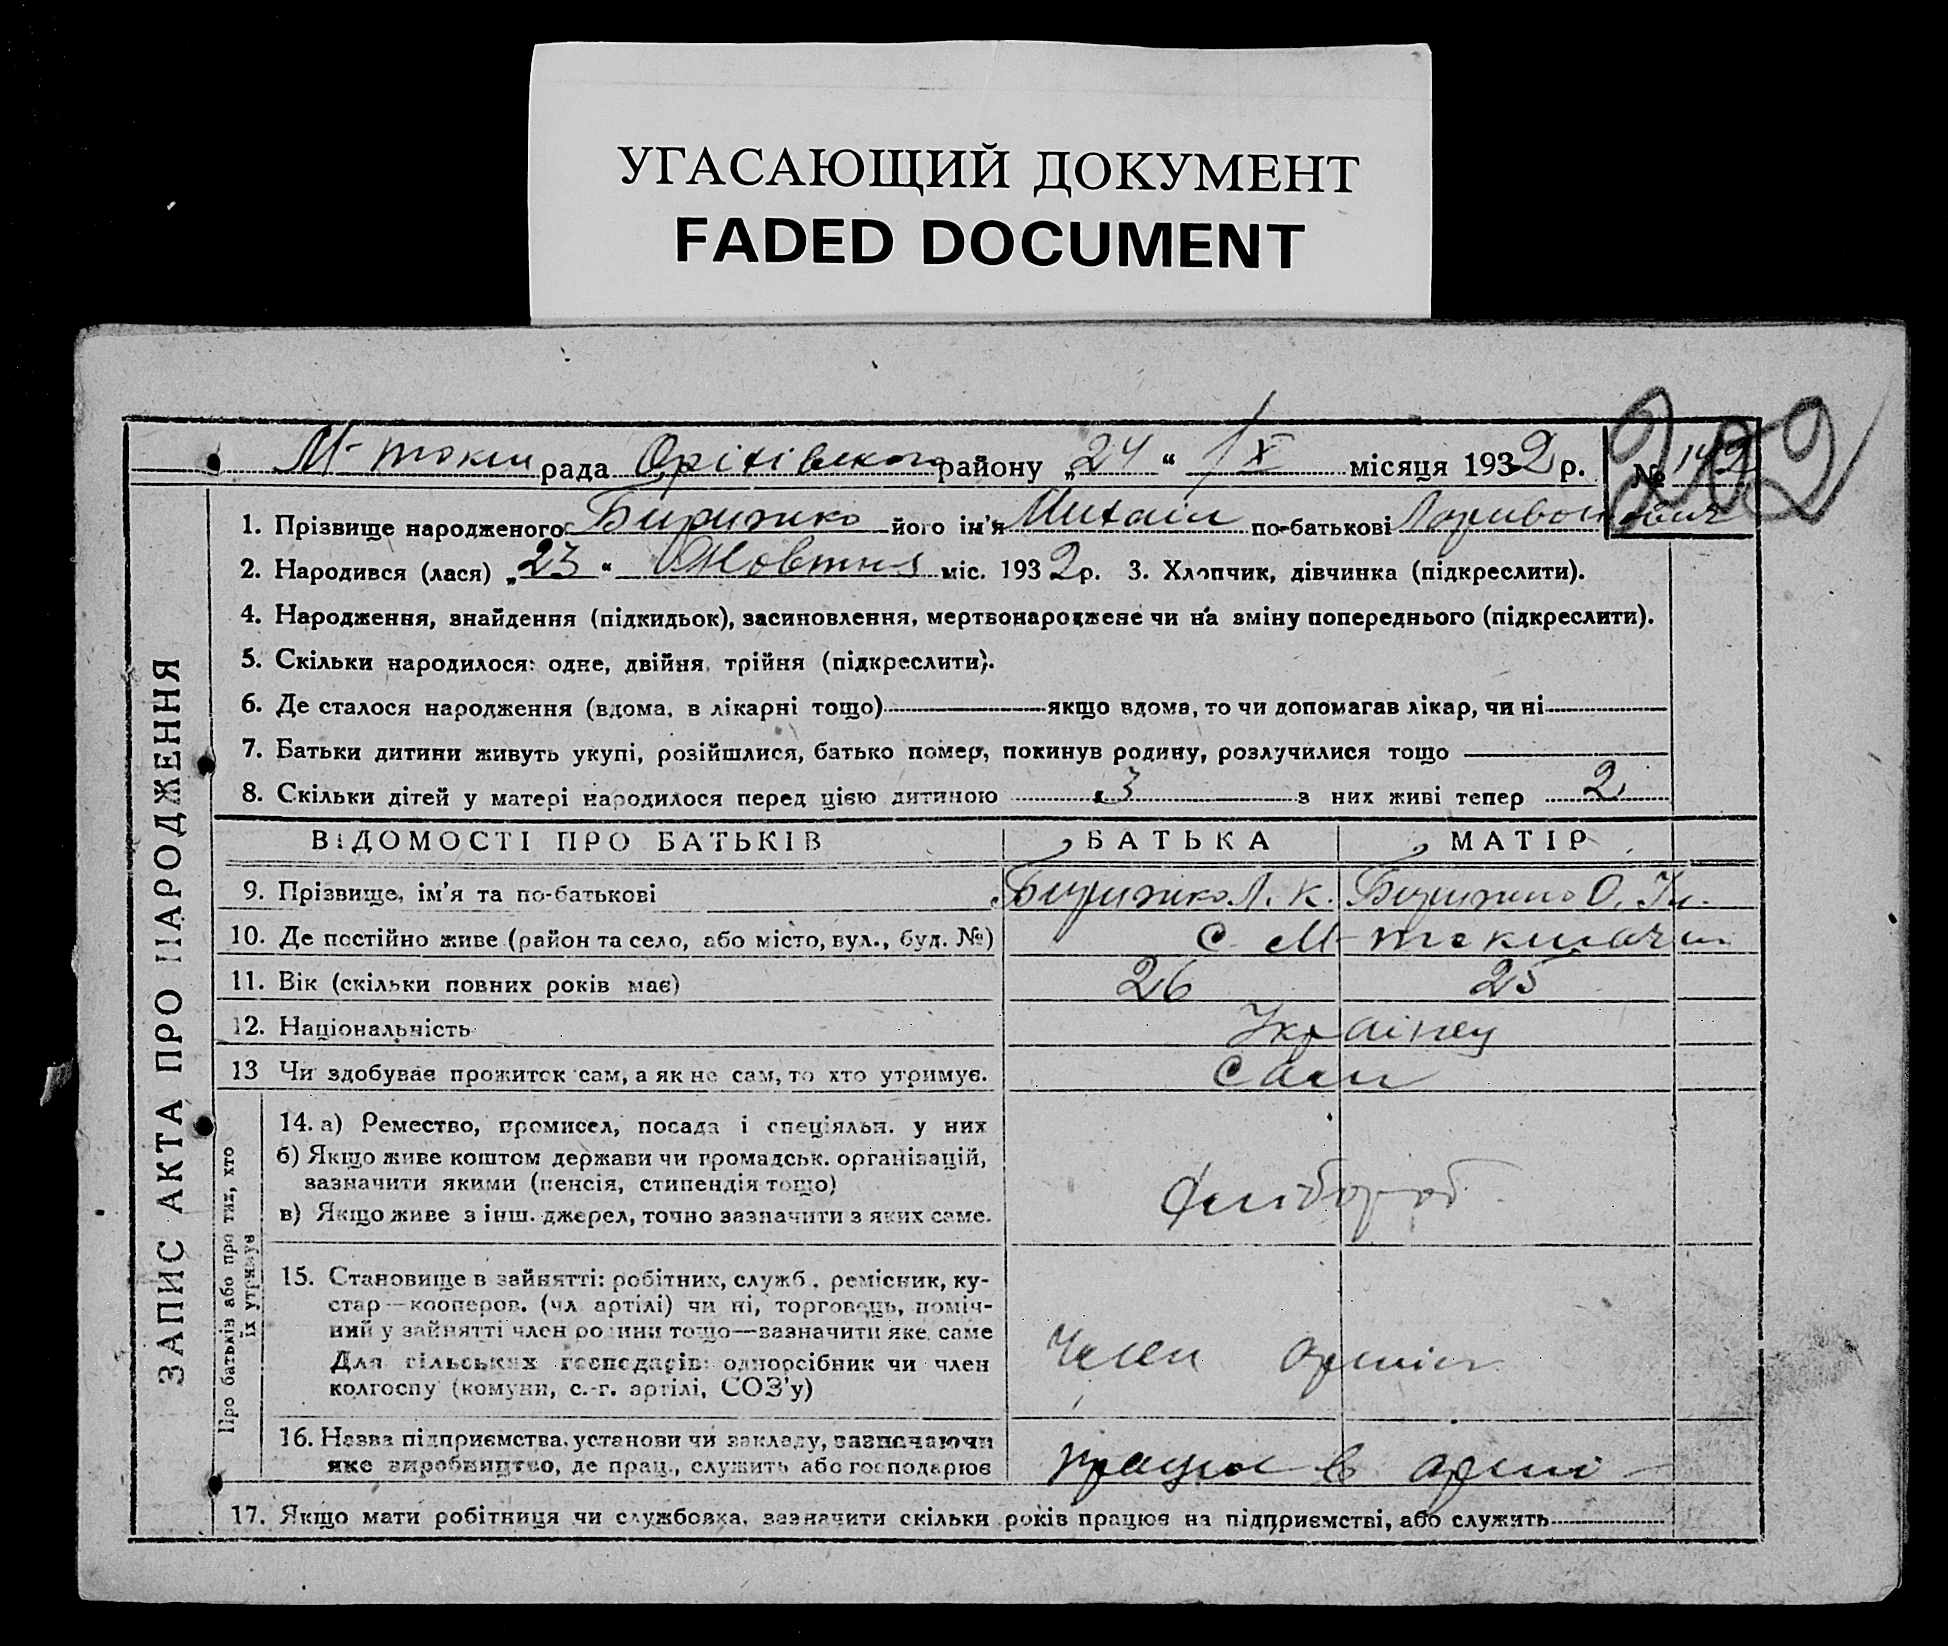 УГАСАЮЩИЙ ДОКУМЕНТ
FADED DOCUMENT
202
М-токм рада Оріхівського району „24“ ІХ місяця 1932 р. № 142
1. Прізвище народженого Бирижко його ім’я Михаіл по-батькові
2. Народився (лася) „23“ Жовтня міс. 1932 р. 3. Хлопчик, дівчинка (підкреслити).
4. Народження, знайдення (підкидьок), засиновлення, мертвонароджене чи на зміну попереднього (підкреслити).
5. Скільки народилося: одне, двійня, трійня (підкреслити).
6. Де сталося народження (вдома, в лікарні тощо) якщо вдома, то чи допомагав лікар, чи ні
7. Батьки дитини живуть укупі, розійшлися, батько помер, покинув родину, розлучилися тощо
8. Скільки дітей у матері народилося перед цією дитиною 3 з них живі тепер 2
ЗАПИС АКТА ПРО НАРОДЖЕННЯ
ВІДОМОСТІ ПРО БАТЬКІВ БАТЬКА МАТІР
9. Прізвище, ім’я та по-батькові Бирижко Л. К. Бирижко О.
10. Де постійно живе (район та село, або місто, вул., буд. №) с. М-токмачи
11. Вік (скільки повних років має) 26 25
12. Національність Украінец
13 Чи здобуває прожиток сам, а як не сам, то хто утримує. Сам
Про батьків або про тих, хто
їх утримує
14. а) Ремество, промисел, посада і спеціяльн. у них
б) Якщо живе коштом держави чи громадськ. організацій,
зазначити якими (пенсія, стипендія тощо)
в) Якщо живе з інш. джерел, точно зазначити з яких саме.
Хлібороб
15. Становище в зайнятті: робітник, служб., ремісник, ку-
стар—кооперов. (чл. артілі) чи ні, торговець, поміч-
ний у зайнятті член родини тощо—зазначити яке саме
Для сільських господарів: одноосібник чи член
колгоспу (комуни, с.-г. артілі, СОЗ’у)
Член артіли
16. Назва підприємства, установи чи закладу, зазначаючи
яке виробництво, де прац., служить або господарює
працює в арті
17. Якщо мати робітниця чи службовка, зазначити скільки років працює на підприємстві, або служить